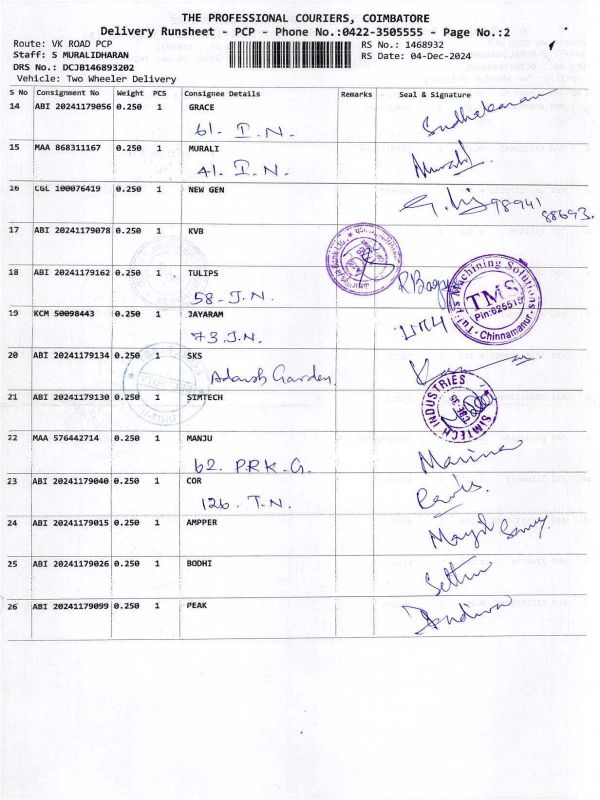 THE PROFESSIONAL COURIERS, COIMBATORE
Delivery Runsheet - PCP - Phone No.:0422-3505555 - Page No.:2
Route: VK ROAD PCP RS No.: 1468932
Staff: S MURALIDHARAN RS Date: 04-Dec-2024
DRS No.: DCJB146893202
Vehicle: Two Wheeler Delivery
S No Consignment No Weight PCS Consignee Details Remarks Seal & Signature
14 ABI 20241179056 0.250 1 GRACE
61. I.N. Sudhakaran
15 MAA 868311167 0.250 1 MURALI
41. I.N. Murali
16 CGL 100076419 0.250 1 NEW GEN
98941
88693.
17 ABI 20241179078 0.250 1 KVB
18 ABI 20241179162 0.250 1 TULIPS
58-I.N.
Tulips Machining Solutions
TMS
Pin:625515
Chinnamanur
19 KCM 50098443 0.250 1 JAYARAM
73.I.N.
20 ABI 20241179134 0.250 1 SKS
Adarsh Garden.
21 ABI 20241179130 0.250 1 SIMTECH
SIMTECH INDUSTRIES
CBE 35
22 MAA 576442714 0.250 1 MANJU
62. P.R.K.G. Marina
23 ABI 20241179040 0.250 1 COR
126. T.N.
24 ABI 20241179015 0.250 1 AMPPER
25 ABI 20241179026 0.250 1 BODHI
26 ABI 20241179099 0.250 1 PEAK